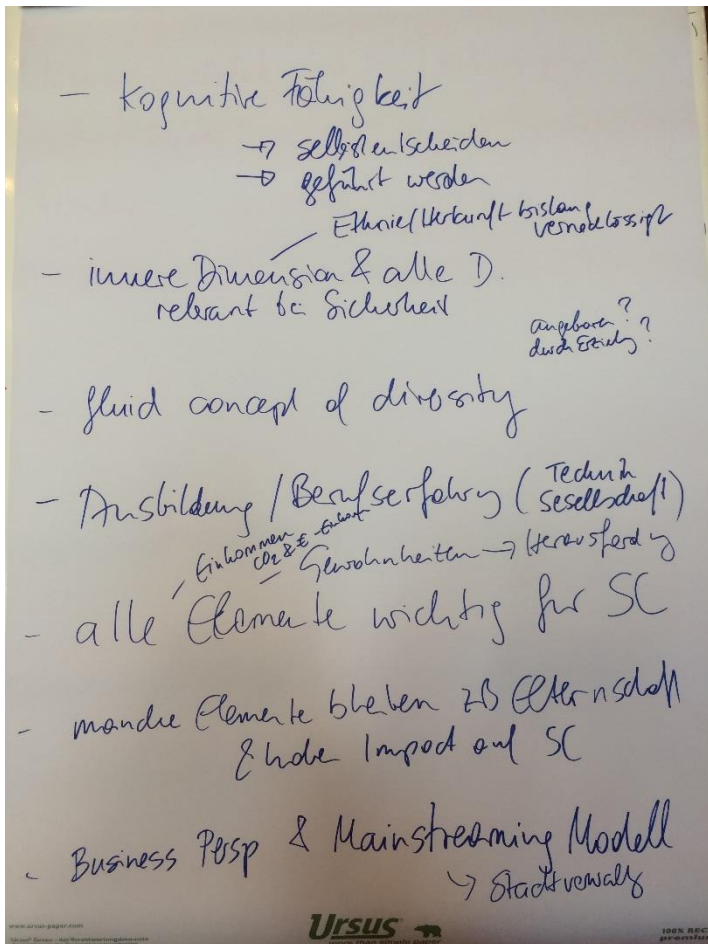 - kognitive Fähigkeit
→ selbst entscheiden
→ geführt werden
Ethnie/Herkunft bislang
vernachlässigt
- innere Dimension & alle D.
relevant bei Sicherheit
angeboren?
durch Erziehg?
- fluid concept of diversity
- Ausbildung / Berufserfahrg (Technik
Gesellschaft)
Einkommen
CO2 & € -Einkauf
Gewohnheiten → Herausfordg
- alle Elemente wichtig für SC
- manche Elemente bleiben zB Elternschaft
& hoher Impact auf SC
- Business Persp & Mainstreaming Modell
↳ Stadtverwaltg
www.ursus-paper.com
Ursus
more than simply paper
100% REC
premium